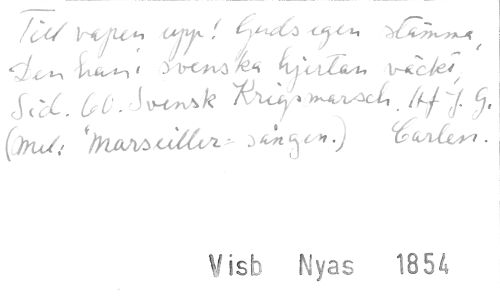 Till vapen upp! Guds egen stämma,
Den har i svenska hjertan väckt,
Sid. 60. Svensk Krigsmarsch. Af J. G.
(Mel: Marseiller-sången.) Carlen.
Visb Nyas 1854